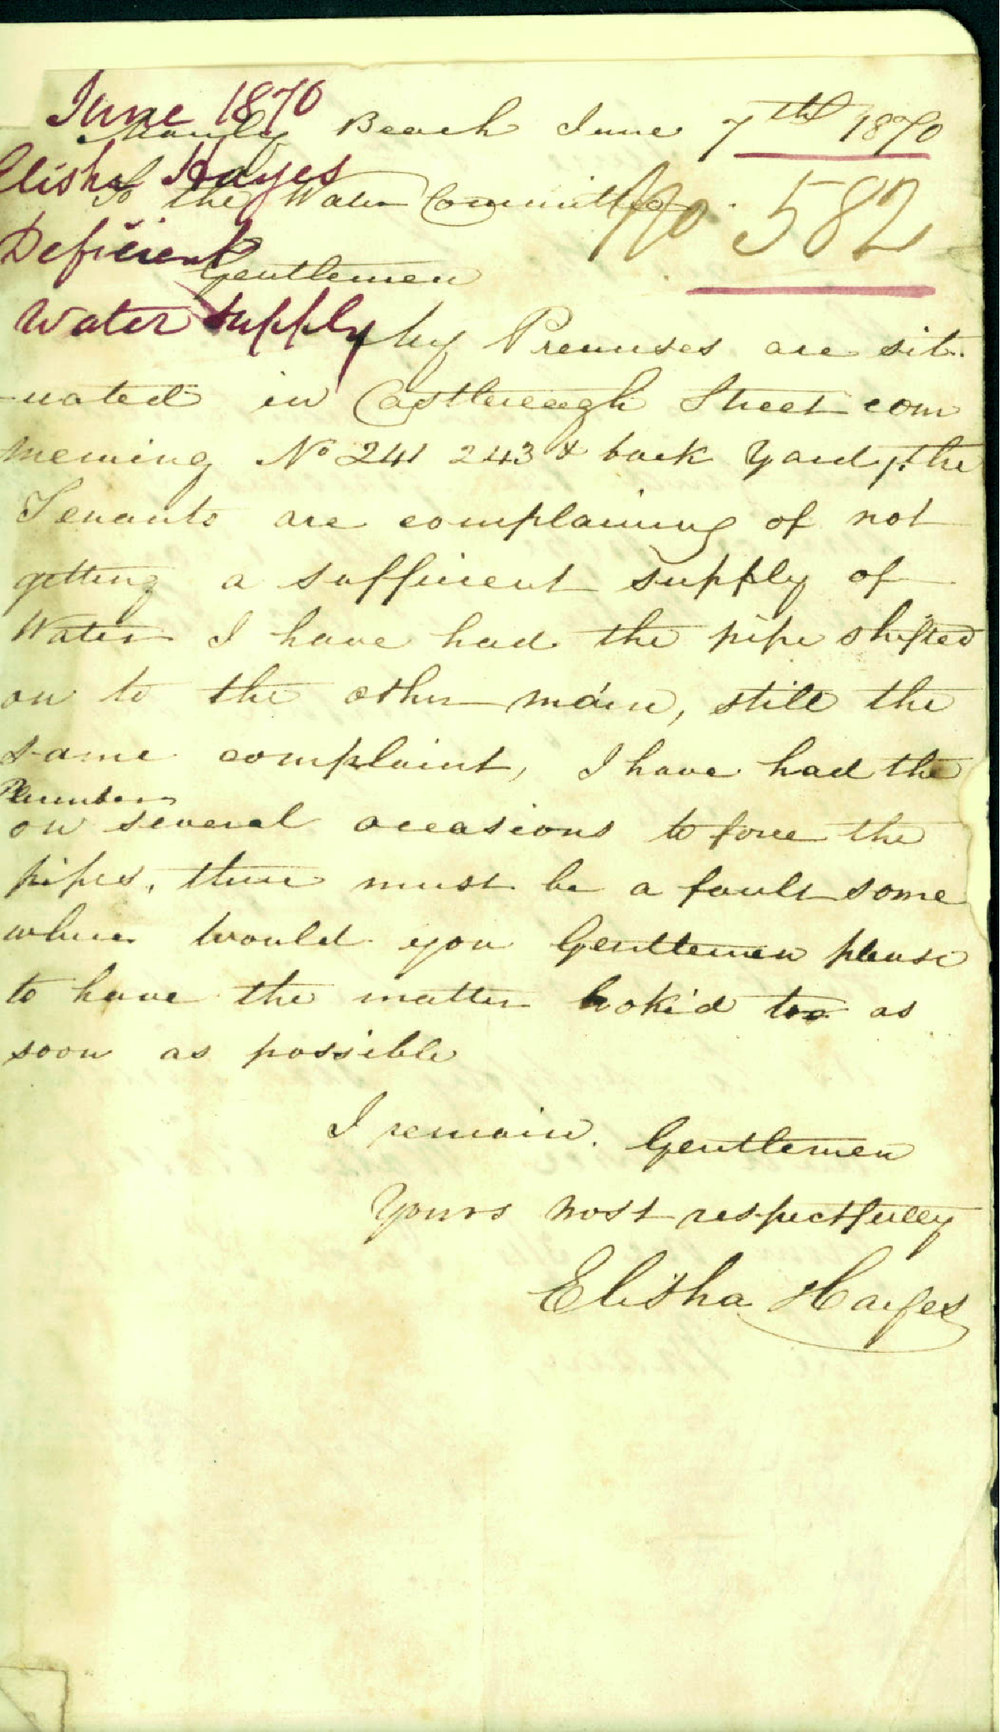 June 1870
Manly Beach June 7th 1870
Elisha Hayes
To the Water Committee
No 582
Deficient
Gentlemen
Water supply
My Premises are sit
-uated in Castlereagh Street com
mencing No 241 243 & back Yard, the
Tenants are complaining of not
getting a sufficient supply of
Water I have had the pipe shifted
on to the other main, still the
same complaint, I have had the
Plumbers
on several occasions to force the
pipes, there must be a fault some
where would you Gentlemen please
to have the matter look'd too as
soon as possible
I remain. Gentlemen
Yours most respectfully
Elisha Hayes